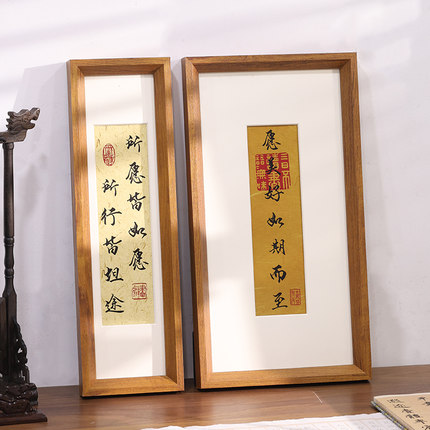 所愿皆如愿
所行皆坦途
愿美好如期而至